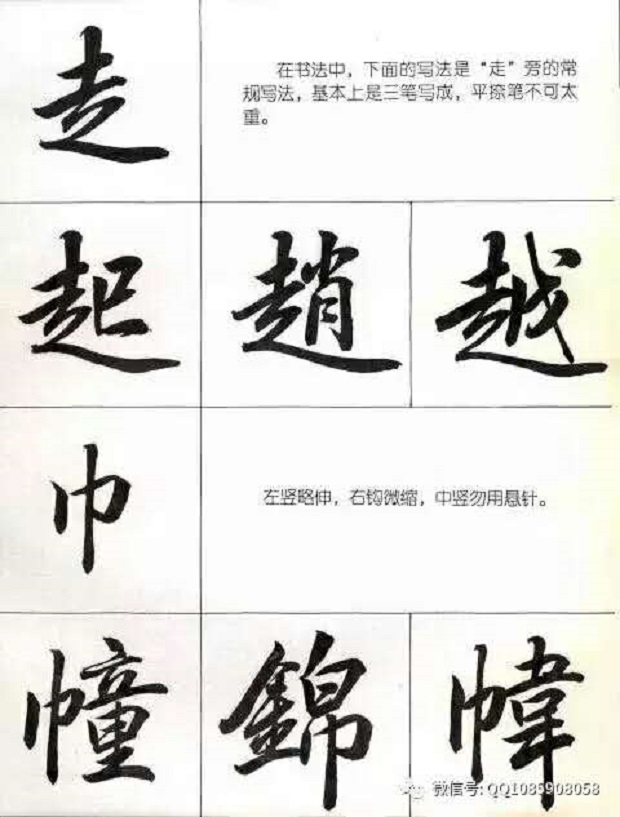 走
在书法中，下面的写法是“走”旁的常
规写法，基本上是三笔写成，平捺笔不可太
重。
起 趙 越
巾
左竖略伸，右钩微缩，中竖勿用悬针。
幢 錦 幃
微信号: QQ1085908058